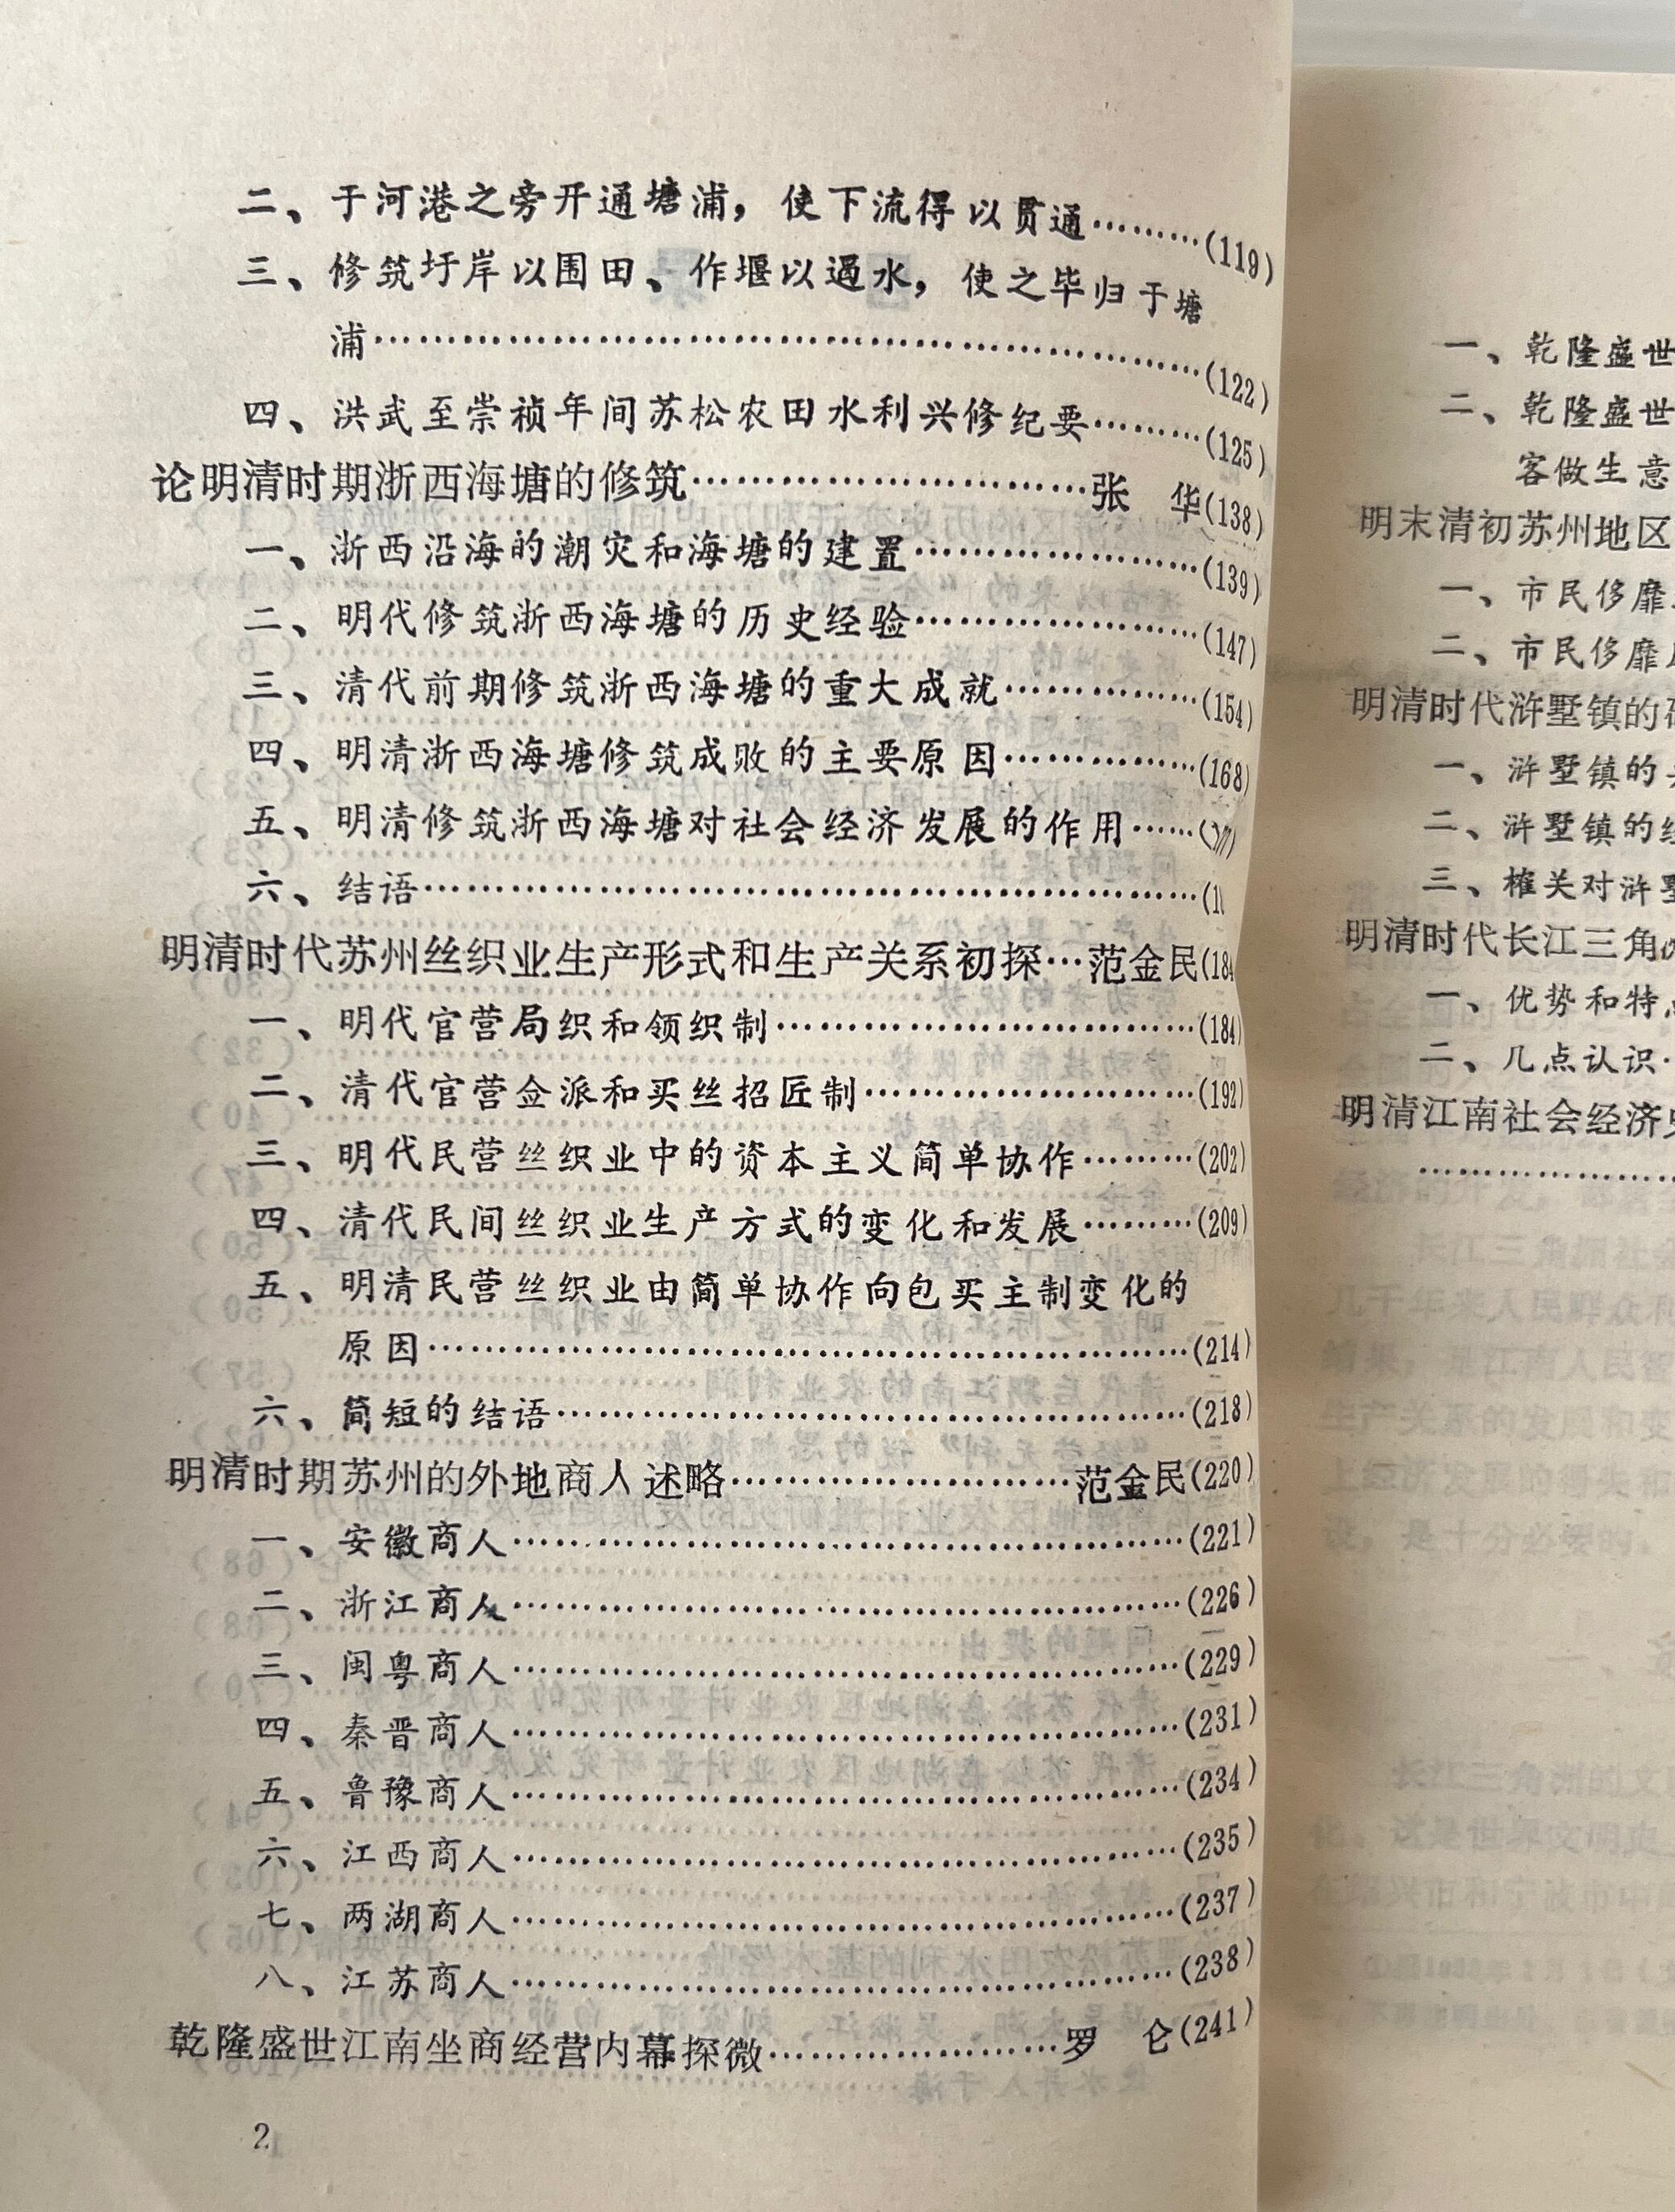 二、于河港之旁开通塘浦，使下流得以贯通………(119)
三、修筑圩岸以围田、作堰以遏水，使之毕归于塘
浦………………………………………………………(122)
四、洪武至崇祯年间苏松农田水利兴修纪要………(125)
论明清时期浙西海塘的修筑…………………………张　华(138)
一、浙西沿海的潮灾和海塘的建置…………………(139)
二、明代修筑浙西海塘的历史经验…………………(147)
三、清代前期修筑浙西海塘的重大成就……………(154)
四、明清浙西海塘修筑成败的主要原因……………(168)
五、明清修筑浙西海塘对社会经济发展的作用……
六、结语…………………………………………………
明清时代苏州丝织业生产形式和生产关系初探…范金民(184
一、明代官营局织和领织制…………………………(184)
二、清代官营佥派和买丝招匠制……………………(192)
三、明代民营丝织业中的资本主义简单协作………(202)
四、清代民间丝织业生产方式的变化和发展………(209)
五、明清民营丝织业由简单协作向包买主制变化的
原因…………………………………………………(214)
六、简短的结语………………………………………(218)
明清时期苏州的外地商人述略………………………范金民(220)
一、安徽商人…………………………………………(221)
二、浙江商人…………………………………………(226)
三、闽粤商人…………………………………………(229)
四、秦晋商人…………………………………………(231)
五、鲁豫商人…………………………………………(234)
六、江西商人…………………………………………(235)
七、两湖商人…………………………………………(237)
八、江苏商人…………………………………………(238)
乾隆盛世江南坐商经营内幕探微……………………罗　仑(241)
2
一、乾隆盛世
二、乾隆盛世
客做生意
明末清初苏州地区
一、市民侈靡
二、市民侈靡
明清时代浒墅镇的
一、浒墅镇的
二、浒墅镇的经
三、榷关对浒墅
明清时代长江三角
一、优势和特点
二、几点认识
明清江南社会经济史
………………